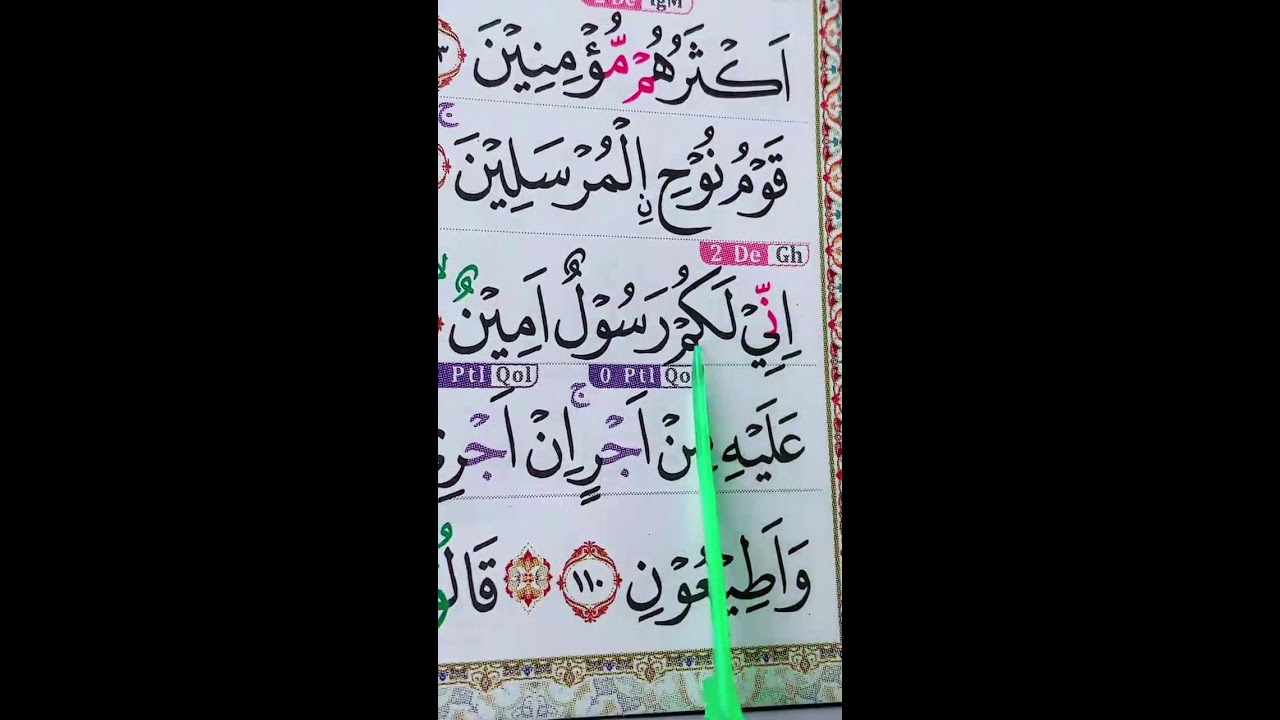 2 De IgM
اَكْثَرُهُمْ مُّؤْمِنِيْنَ
قَوْمُ نُوْحِ ۨالْمُرْسَلِيْنَ ۚ
2 De Gh
اِنِّيْ لَكُمْ رَسُوْلٌ اَمِيْنٌ ۙ
0 Ptl Qol Ptl Qol
عَلَيْهِ مِنْ اَجْرٍ ۚ اِنْ اَجْرِيَ
وَاَطِيْعُوْنِ ١١٠